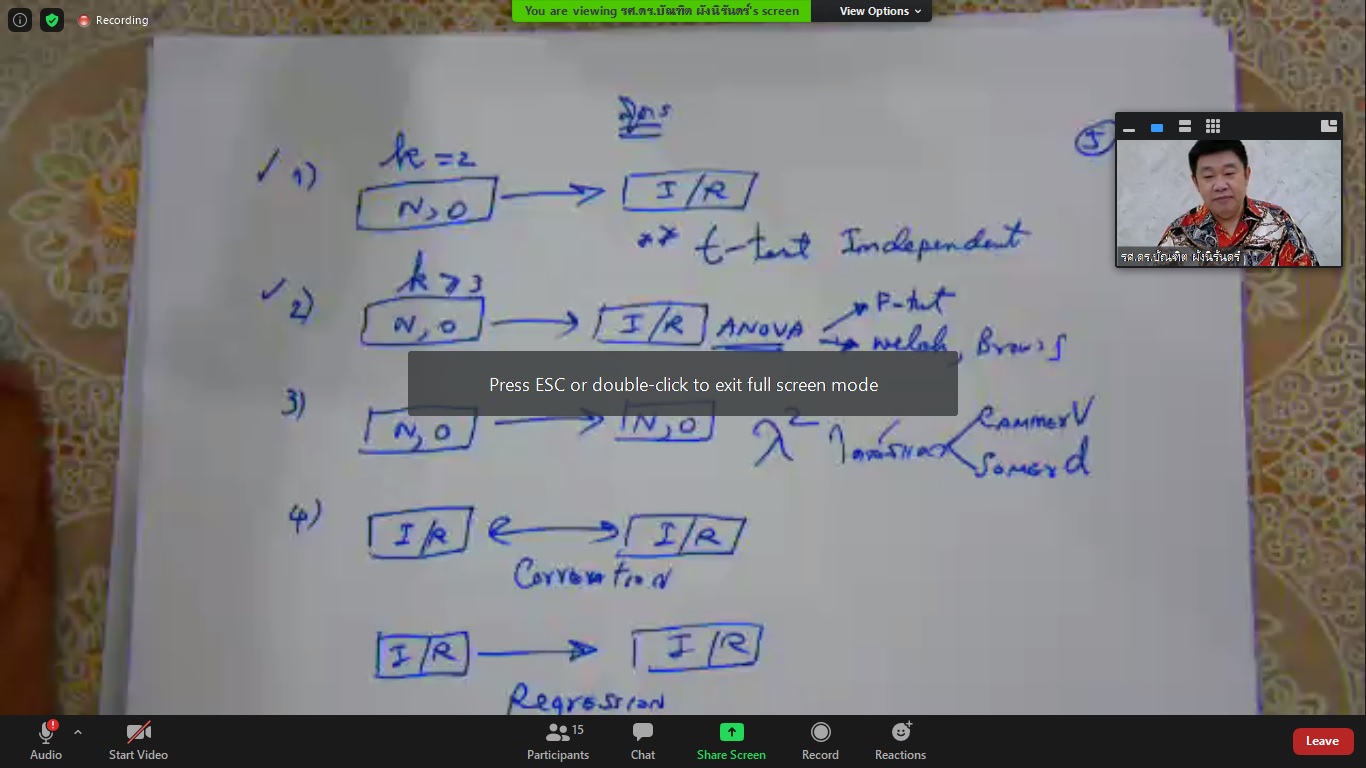 Recording
You are viewing รศ.ดร.บัณฑิต ผังนิรันดร์'s screen
View Options
สูตร
5
1) k = 2
N, O → I/R
** t-test Independent
2) k ≥ 3
N, O → I/R ANOVA
F-test
Welch, Brown
3) N, O → N, O
λ²
CAMMER V
SOMER d
4) I/R ↔ I/R
Correlation
I/R → I/R
Regression
รศ.ดร.บัณฑิต ผังนิรันดร์
Press ESC or double-click to exit full screen mode
Audio
Start Video
Participants
15
Chat
Share Screen
Record
Reactions
Leave